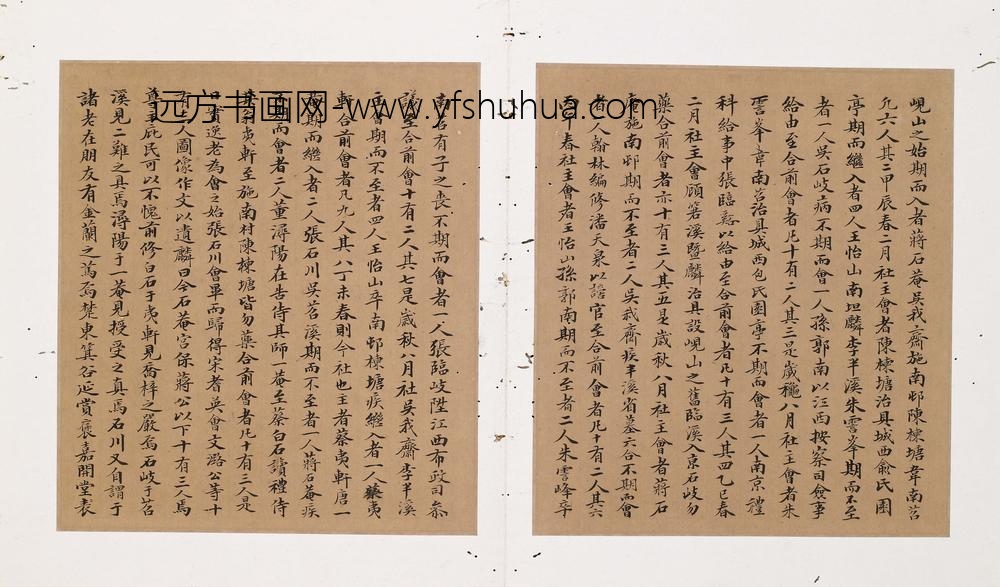 峴山之始期而入者蔣石菴吳我齋施南邨陳棟塘韋南苕
九六人其二甲辰春二月社主會者陳棟塘治具城西兪氏園
亭期而繼入者四人王怡山南坦麟李半溪朱雲峯期而不至
者一人吳石岐病不期而會一人孫郭南以江西按察司僉事
給由至合前會者凡十有二人其三是歲穐八月社主會者朱
雲峯韋南苕治具城西包氏園亭不期而會者一人南京禮
科給事中張臨谿以給由至合前會者凡十有三人其四乙巳春
二月社主會顧箬溪暨麟治具設峴山之舊臨溪入京石岐勿
藥合前會者亦十有三人其五是歲秋八月社主會者蔣石
施南邨期而不至者二人吳我齋疾半溪省墓六合不期而會
者一人翰林編修潘天泉以謫官至合前會者凡十有二人其六
午春社主會者王怡山孫郭南期而不至者二人朱雲峰卒
南苕有子之喪不期而會者一人張臨岐陞江西布政司叅
議至合前會十有二人其七是歲秋八月社吳我齋李半溪
會期而不至者四人王怡山卒南邨棟塘疾繼入者一人蔡夷
軒合前會者凡九人其八丁未春則今社也主者蔡夷軒唐一
菴期而繼入者二人張石川吳苕溪期而不至者一人蔣石菴疾
不期而會者二人董潯陽在告侍其師一菴至蔡白石讀禮侍
其父夷軒至施南村陳棟塘皆勿藥合前會者凡十有三人是
日賓逸老為會之始張石川會畢而歸得宋耆英會文潞公等十
有二人圖像作文以遺麟曰今石菴宮保蔣公以下十有三人焉
尊事庇民可以不愧前修白石于夷軒見喬梓之嚴焉石岐于苕
溪見二難之具焉潯陽于一菴見授受之真焉石川又自謂于
諸老在朋友有金蘭之篤焉楚東箕谷延賞褒嘉開堂表
元方书画网-www.yfshuhua.com